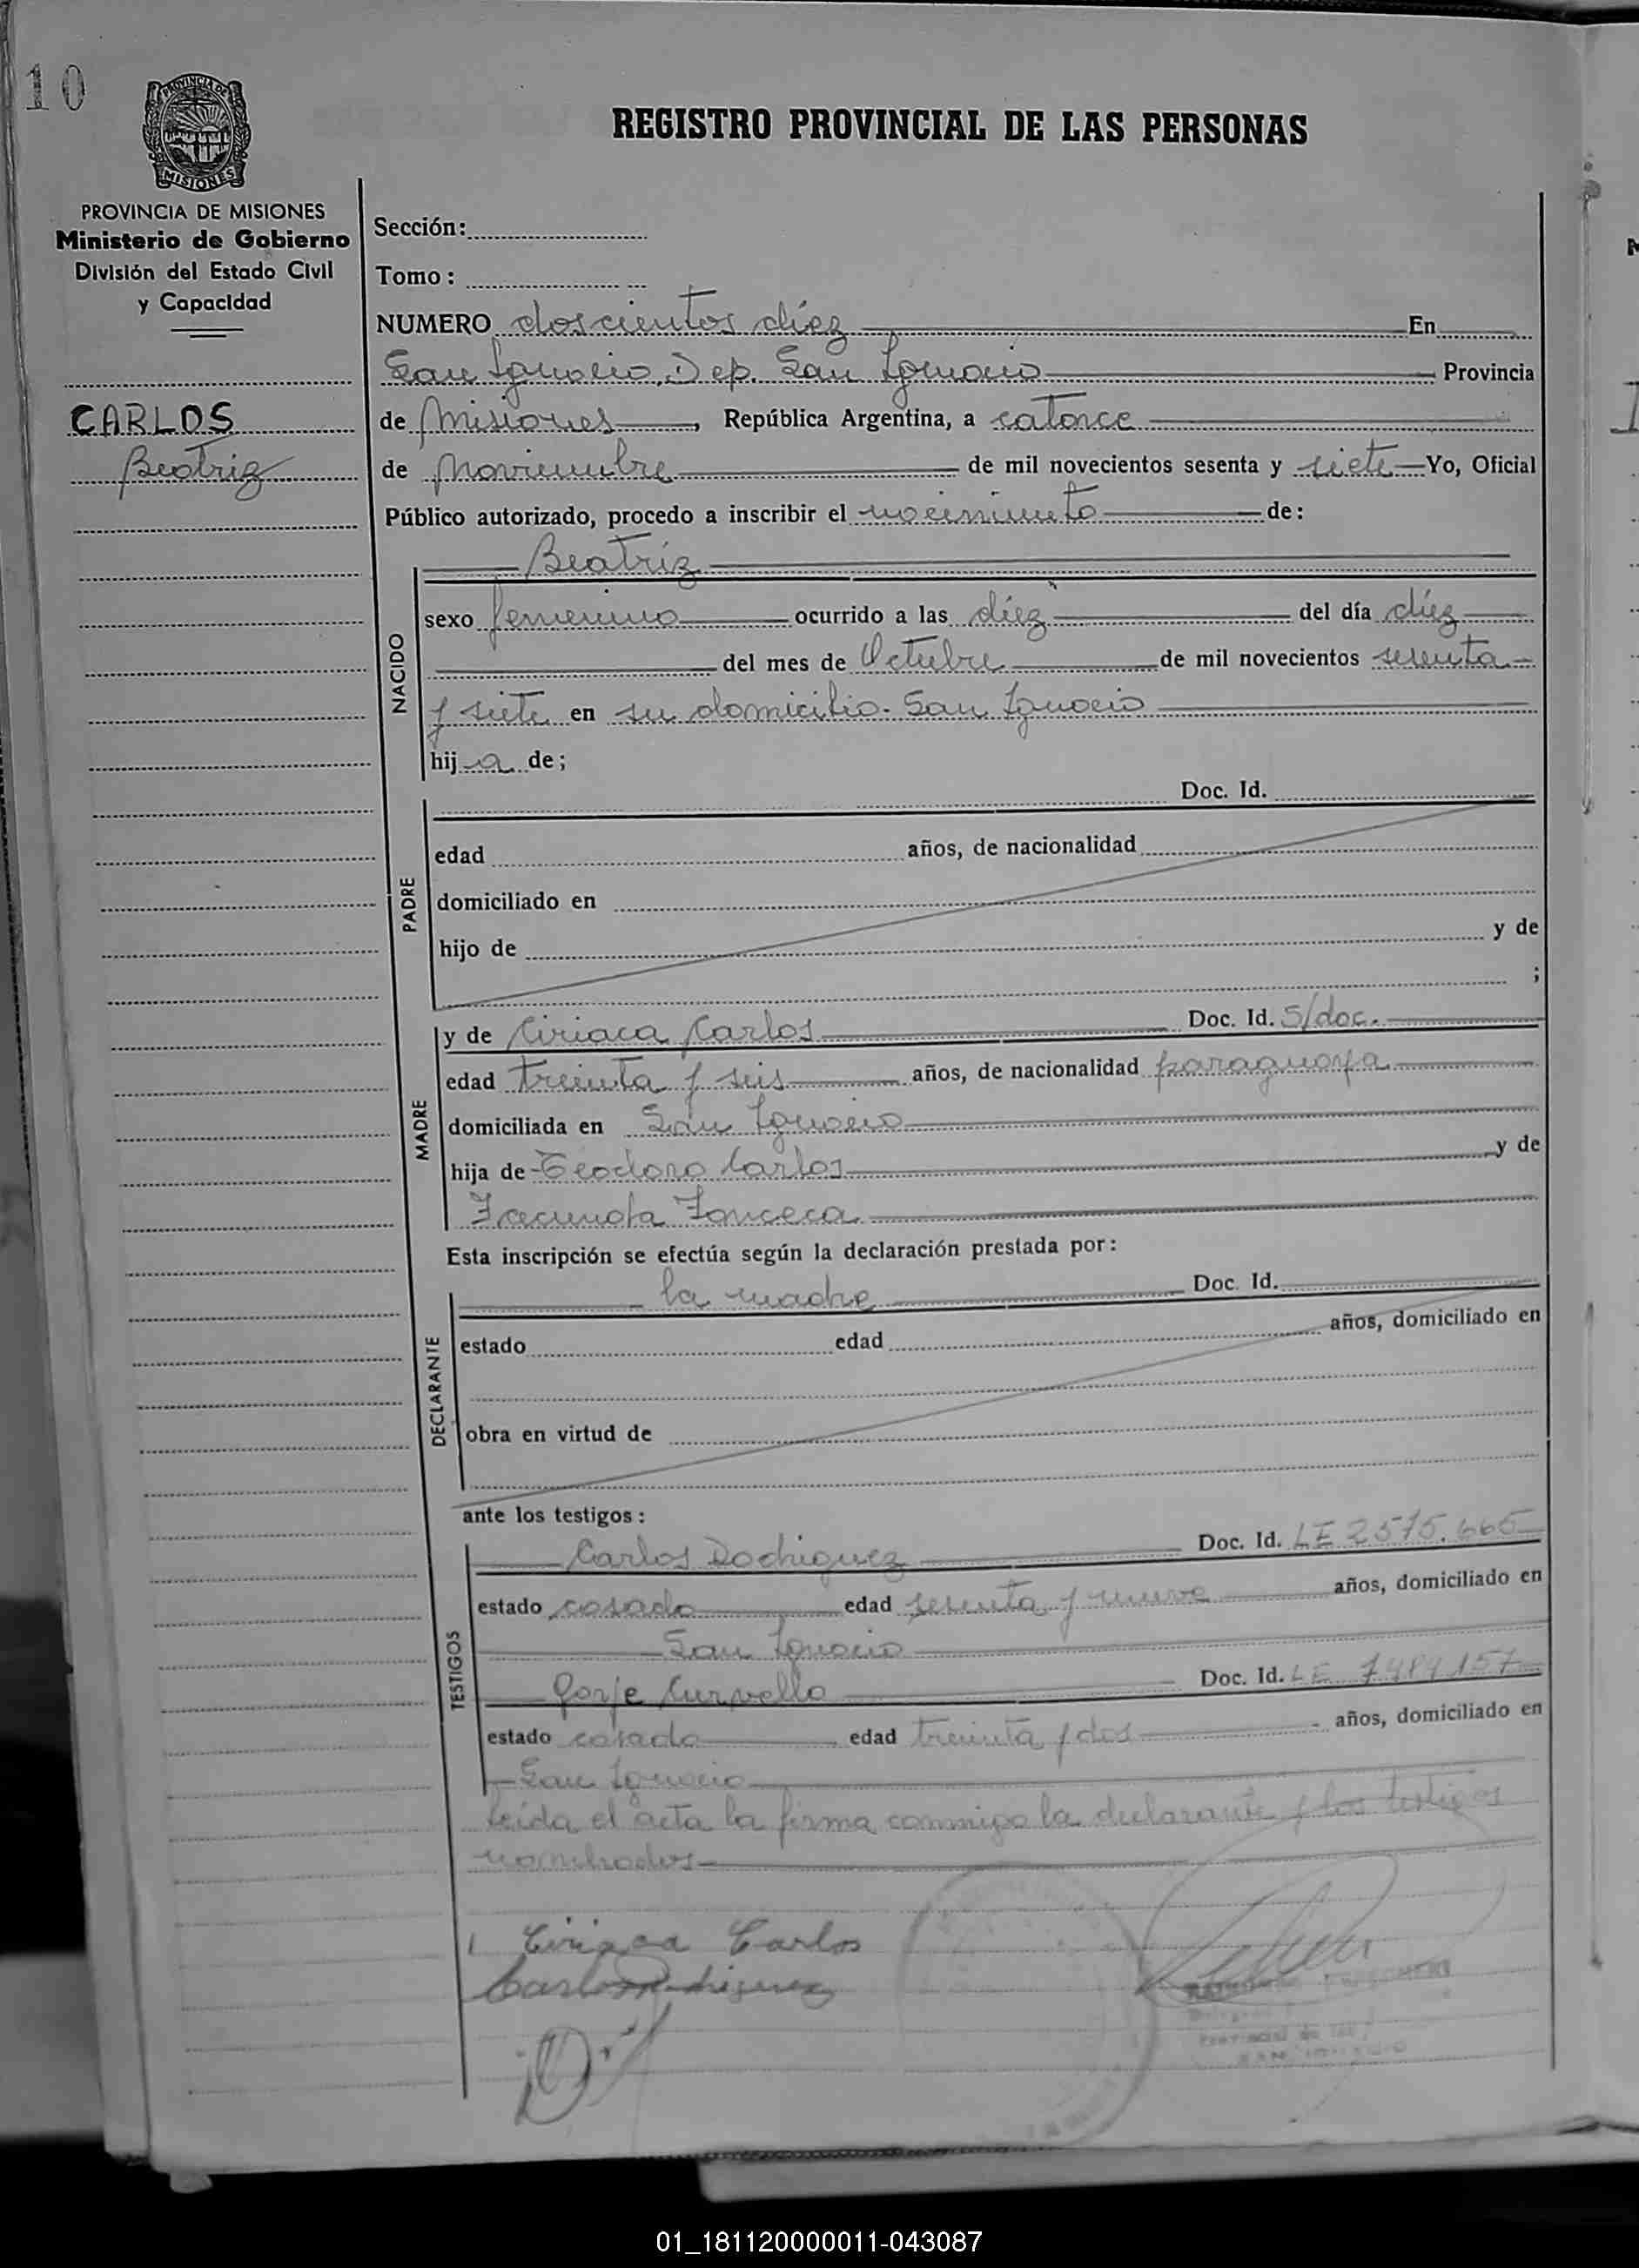 10
PROVINCIA DE
MISIONES
REGISTRO PROVINCIAL DE LAS PERSONAS
PROVINCIA DE MISIONES
Ministerio de Gobierno
División del Estado Civil
y Capacidad
CARLOS
Beatriz
Sección:
Tomo:
NUMERO doscientos diéz En
San Ignacio, Dep. San Ignacio Provincia
de Misiones, República Argentina, a catorce
de Noviembre de mil novecientos sesenta y siete Yo, Oficial
Público autorizado, procedo a inscribir el nacimiento de:
Beatriz
NACIDO
sexo femenino ocurrido a las diéz del día diéz
del mes de Octubre de mil novecientos sesenta
y siete en su domicilio. San Ignacio
hija de;
PADRE
Doc. Id.
edad años, de nacionalidad
domiciliado en
hijo de y de
;
MADRE
y de Ciriaca Carlos Doc. Id. S/doc.
edad treinta y seis años, de nacionalidad paraguaya
domiciliada en San Ignacio
hija de Teodoro Carlos y de
Facunda Fonceca
Esta inscripción se efectúa según la declaración prestada por:
DECLARANTE
la madre Doc. Id.
estado edad años, domiciliado en
obra en virtud de
ante los testigos:
TESTIGOS
Carlos Rodriguez Doc. Id. LE 2575.665
estado casado edad sesenta y nueve años, domiciliado en
San Ignacio
Jorje Curvello Doc. Id. LE 7.484.157
estado casado edad treinta y dos años, domiciliado en
San Ignacio
leída el acta la firma conmigo la declarante y los testigos
nombrados
Ciriaca Carlos
01_181120000011-043087